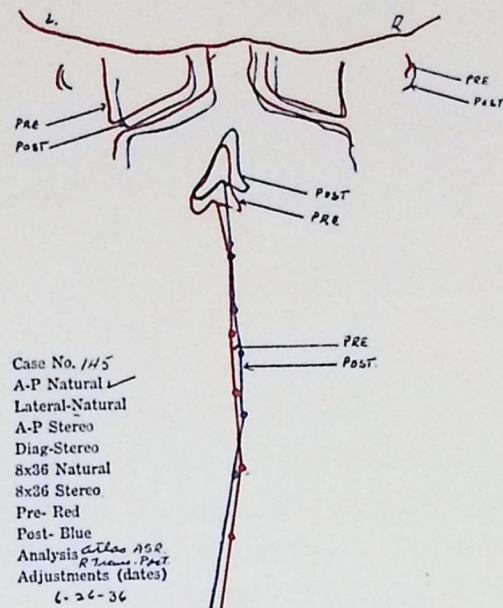 L.
R
PRE
POST
PRE
POST
POST
PRE
PRE
POST.
Case No. 145
A-P Natural ✓
Lateral-Natural
A-P Stereo
Diag-Stereo
8x36 Natural
8x36 Stereo
Pre- Red
Post- Blue
Analysis Atlas ASR
R Trans. Post.
Adjustments (dates)
6-26-36